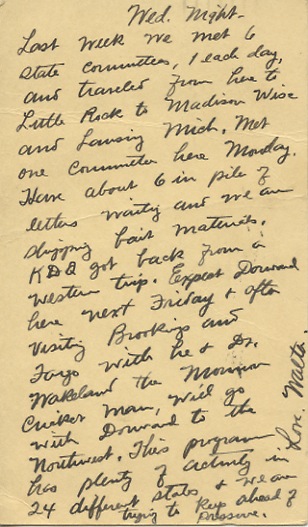 Wed. Night.
Last week we met 6
state committees, 1 each day,
and traveled from here to
Little Rock to Madison Wisc
and Lansing Mich. Met
one committee here Monday.
Have about 6 in pile of
letters waiting and we are
shipping bait materials.
KDQ got back from a
western trip. Expect Dorward
here next Friday & after
visiting Brookings and
Fargo with he & Dr.
Wakeland the Mormon
Cricket man, we'd go
with Dorward to the
Northwest. This program
has plenty of activity in
24 different states & we are
trying to keep ahead of
pressure.
Love, Walter